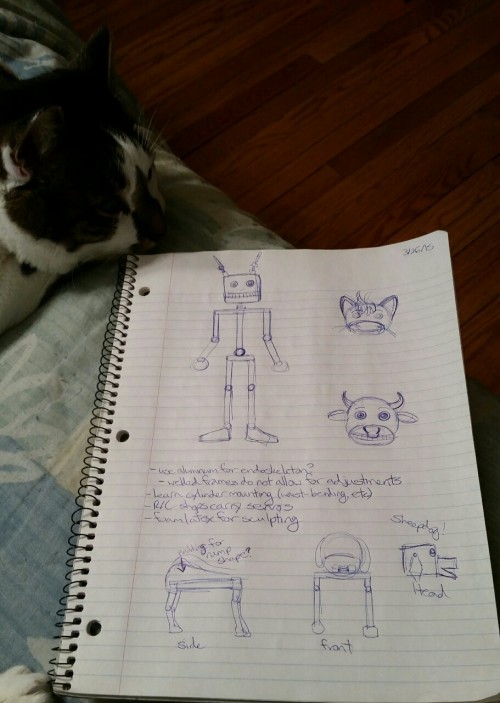 3/26/15
- use aluminum for endoskeleton?
- welded frames do not allow for adjustments
- Learn cylinder mounting (waist-bending, etc)
- R/C shops carry servos
- foam latex for sculpting
Sheepdog!
padding for
rump
shape?
Head
side
front